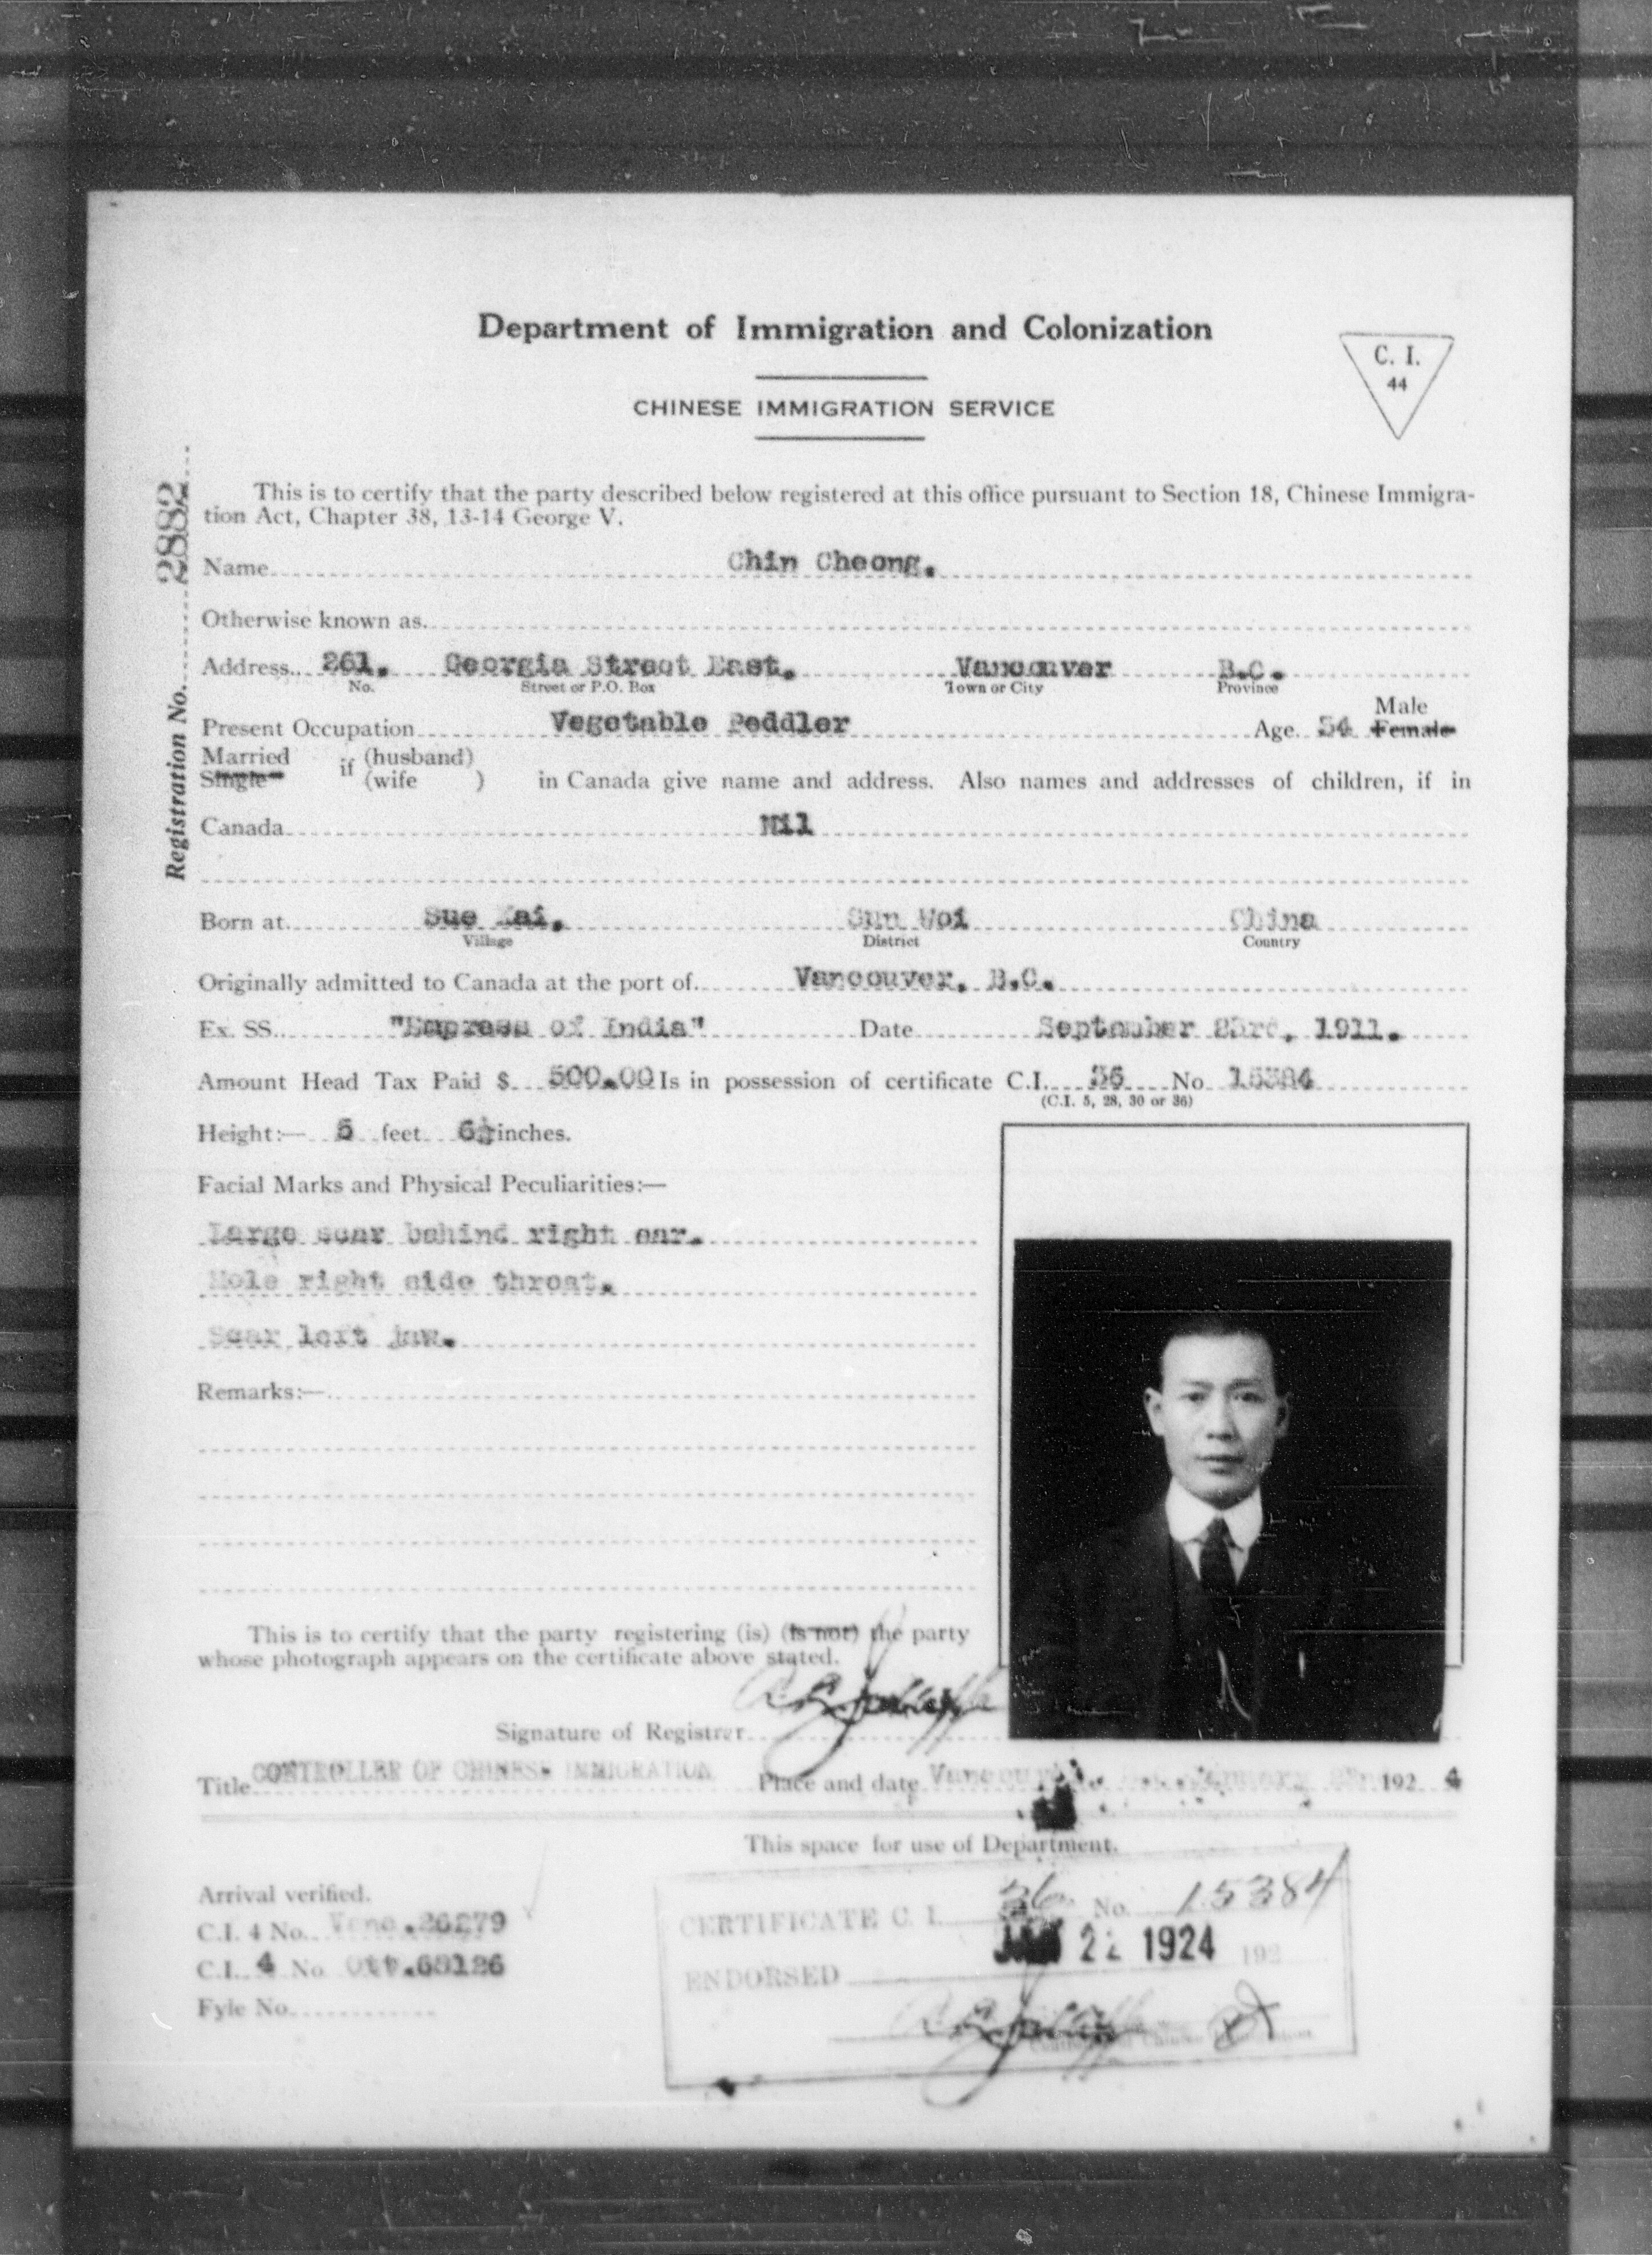 Department of Immigration and Colonization
C. I.
44
CHINESE IMMIGRATION SERVICE
Registration No. 2882
This is to certify that the party described below registered at this office pursuant to Section 18, Chinese Immigra-
tion Act, Chapter 38, 13-14 George V.
Name Chin Cheong.
Otherwise known as.
Address. 261. Georgia Street East. Vancouver B.C.
No. Street or P.O. Box Town or City Province
Male
Present Occupation Vegetable Peddler Age. 34 Female
Married if (husband)
Single (wife ) in Canada give name and address. Also names and addresses of children, if in
Canada Nil
Born at Sue Kai, Sun Woi China
Village District Country
Originally admitted to Canada at the port of Vancouver, B.C.
Ex. SS. "Empress of India" Date September 23rd, 1911.
Amount Head Tax Paid $ 500.00 Is in possession of certificate C.I. 36 No 15384
(C.I. 5, 28, 30 or 36)
Height:— 5 feet 6 inches.
Facial Marks and Physical Peculiarities:—
Large scar behind right ear.
Mole right side throat.
Scar left jaw.
Remarks:—
This is to certify that the party registering (is) (is not) the party
whose photograph appears on the certificate above stated.
Signature of Registrar
Title CONTROLLER OF CHINESE IMMIGRATION Place and date Vancouver 192 4
This space for use of Department.
Arrival verified.
C.I. 4 No. Vanc.26279
C.I. 4 No Ott.68126
Fyle No.
CERTIFICATE C. I. 36 No. 15384
JAN 22 1924 192
ENDORSED